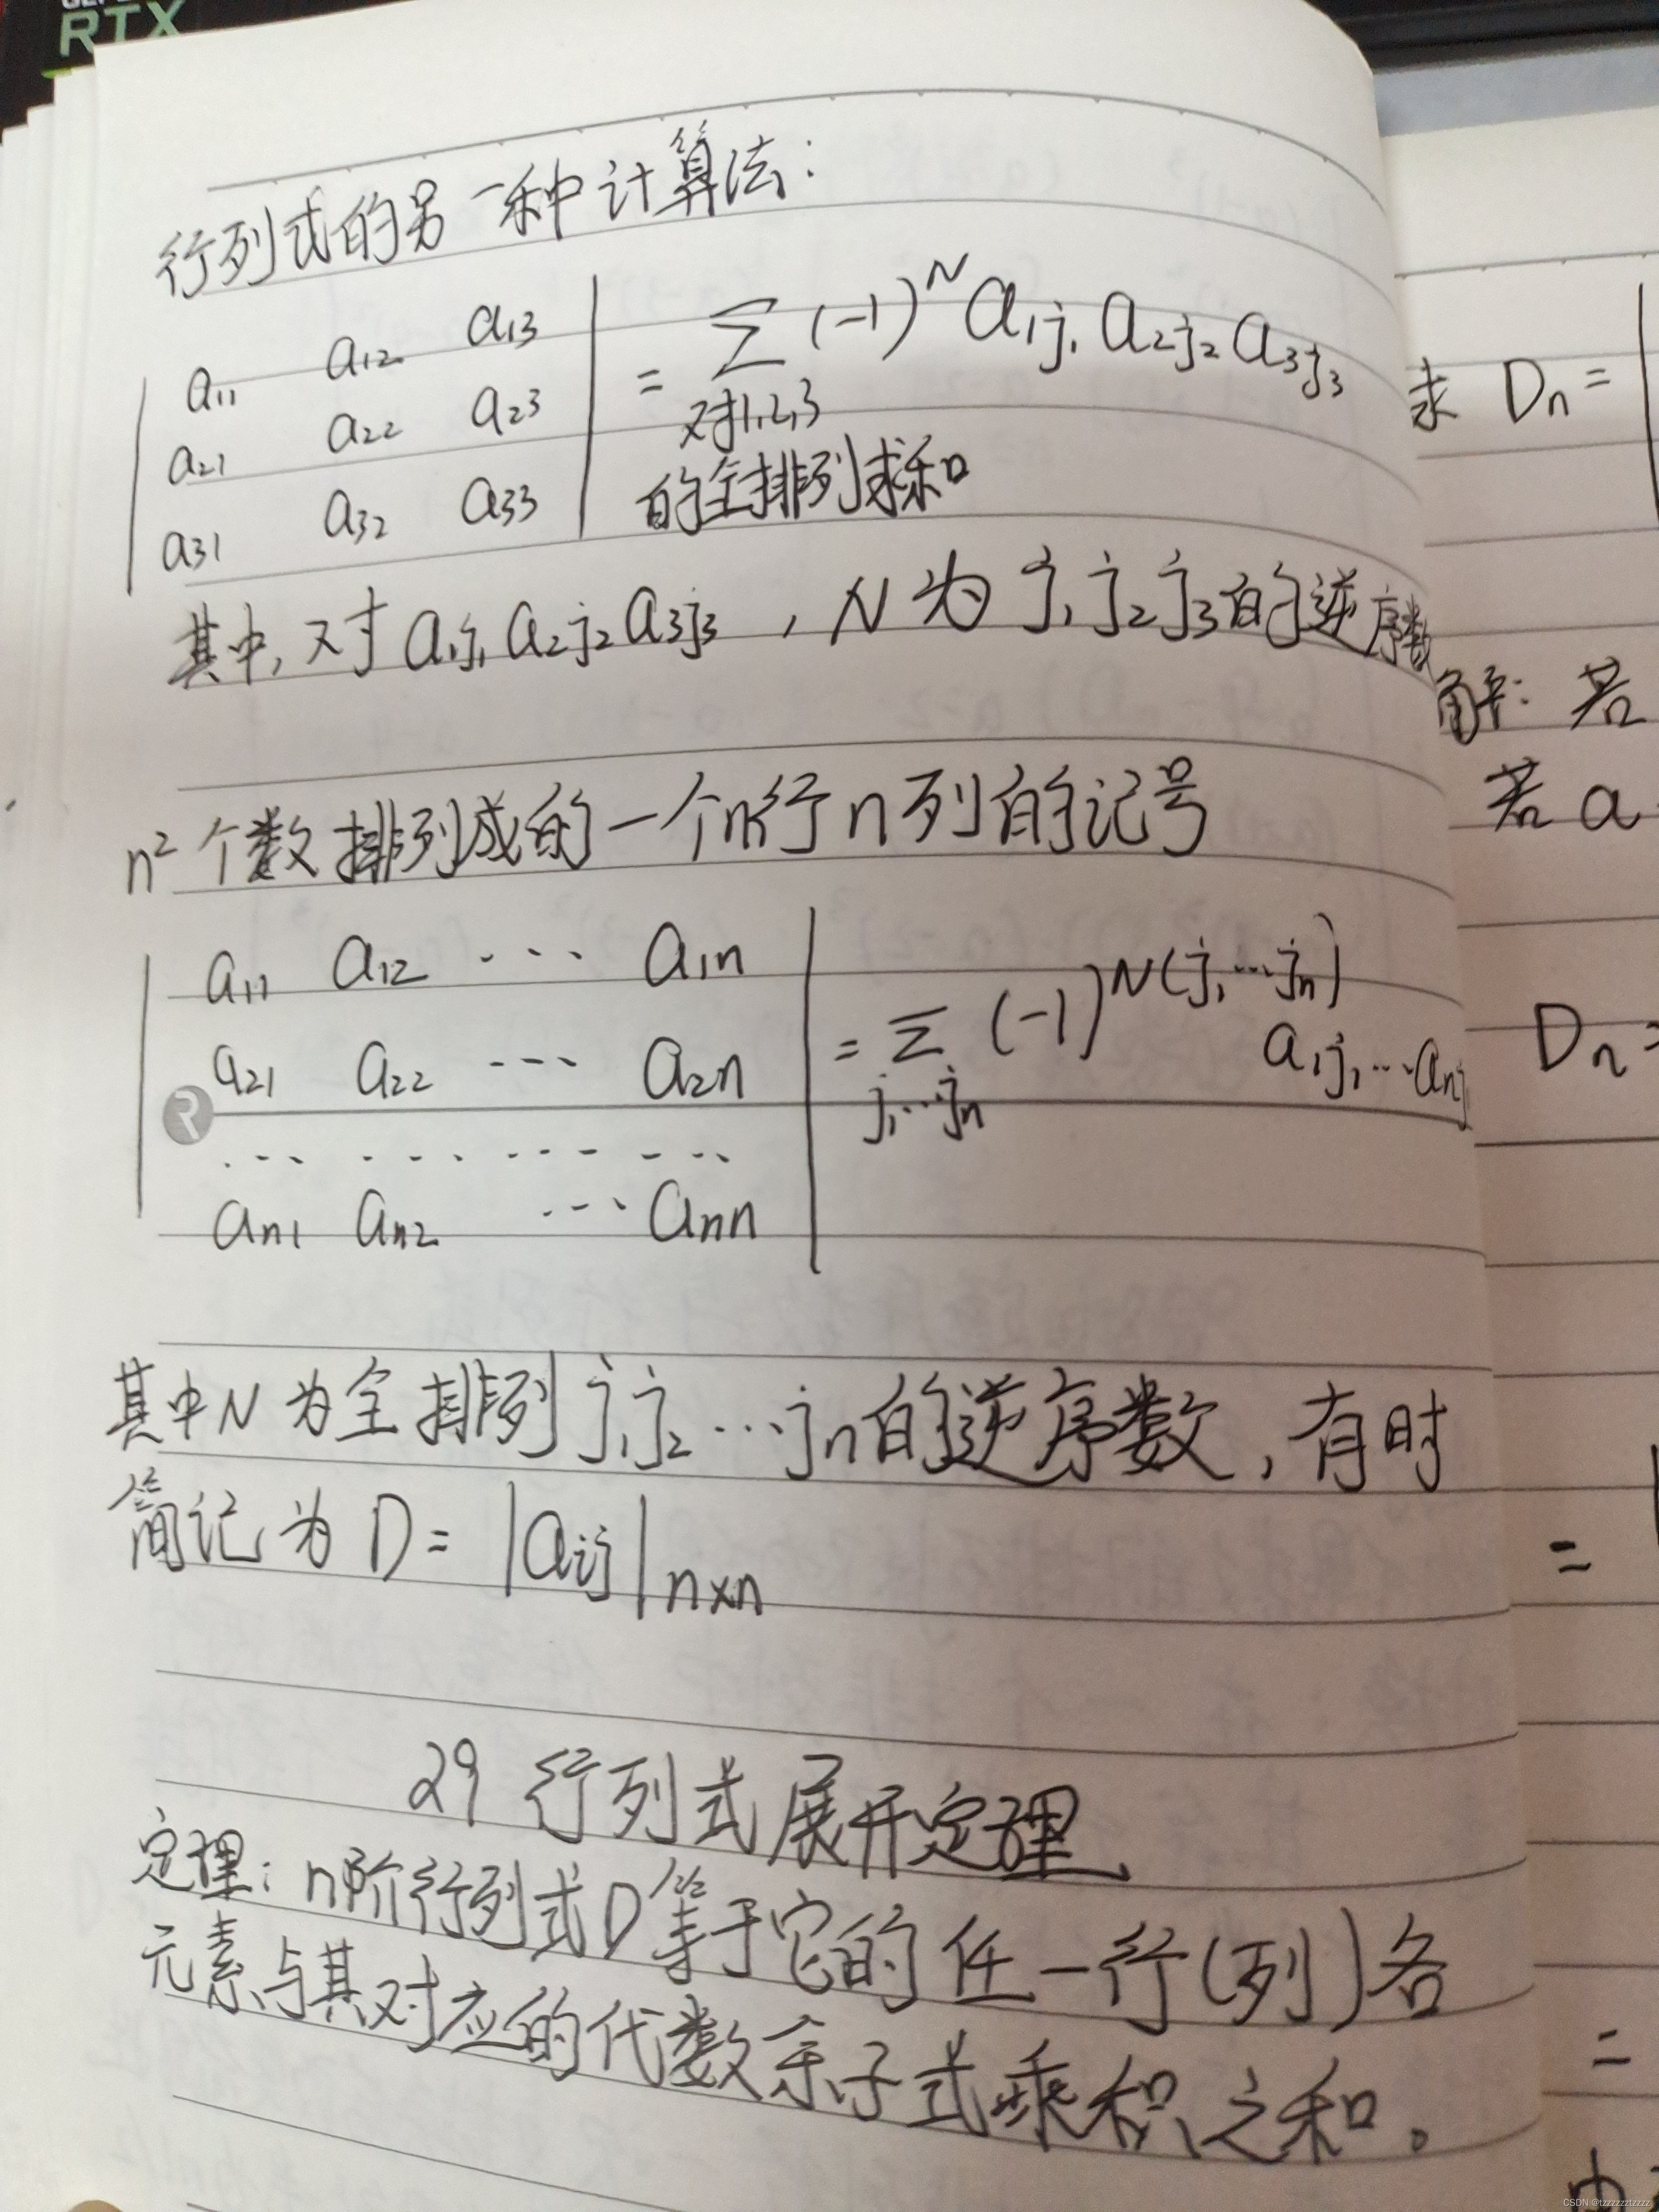 RTX
行列式的另一种计算法：
a11 a12 a13
a21 a22 a23
a31 a32 a33
= ∑ (-1)^N a1j1 a2j2 a3j3
对1,2,3
的全排列求和
其中, 对 a1j1 a2j2 a3j3 , N 为 j1 j2 j3 的逆序数
n² 个数排列成的一个n行n列的记号
a11 a12 ... a1n
a21 a22 ... a2n
... ... ... ...
an1 an2 ... ann
= ∑ (-1)^N(j1...jn)
j1...jn
a1j1...anj
其中N为全排列 j1j2...jn的逆序数, 有时
简记为 D = |aij|n×n
29 行列式展开定理
定理: n阶行列式D等于它的任一行(列)各
元素与其对应的代数余子式乘积之和。
求 Dn =
解: 若
若 a
Dn =
=
=
CSDN @tzzzzzztzzzz